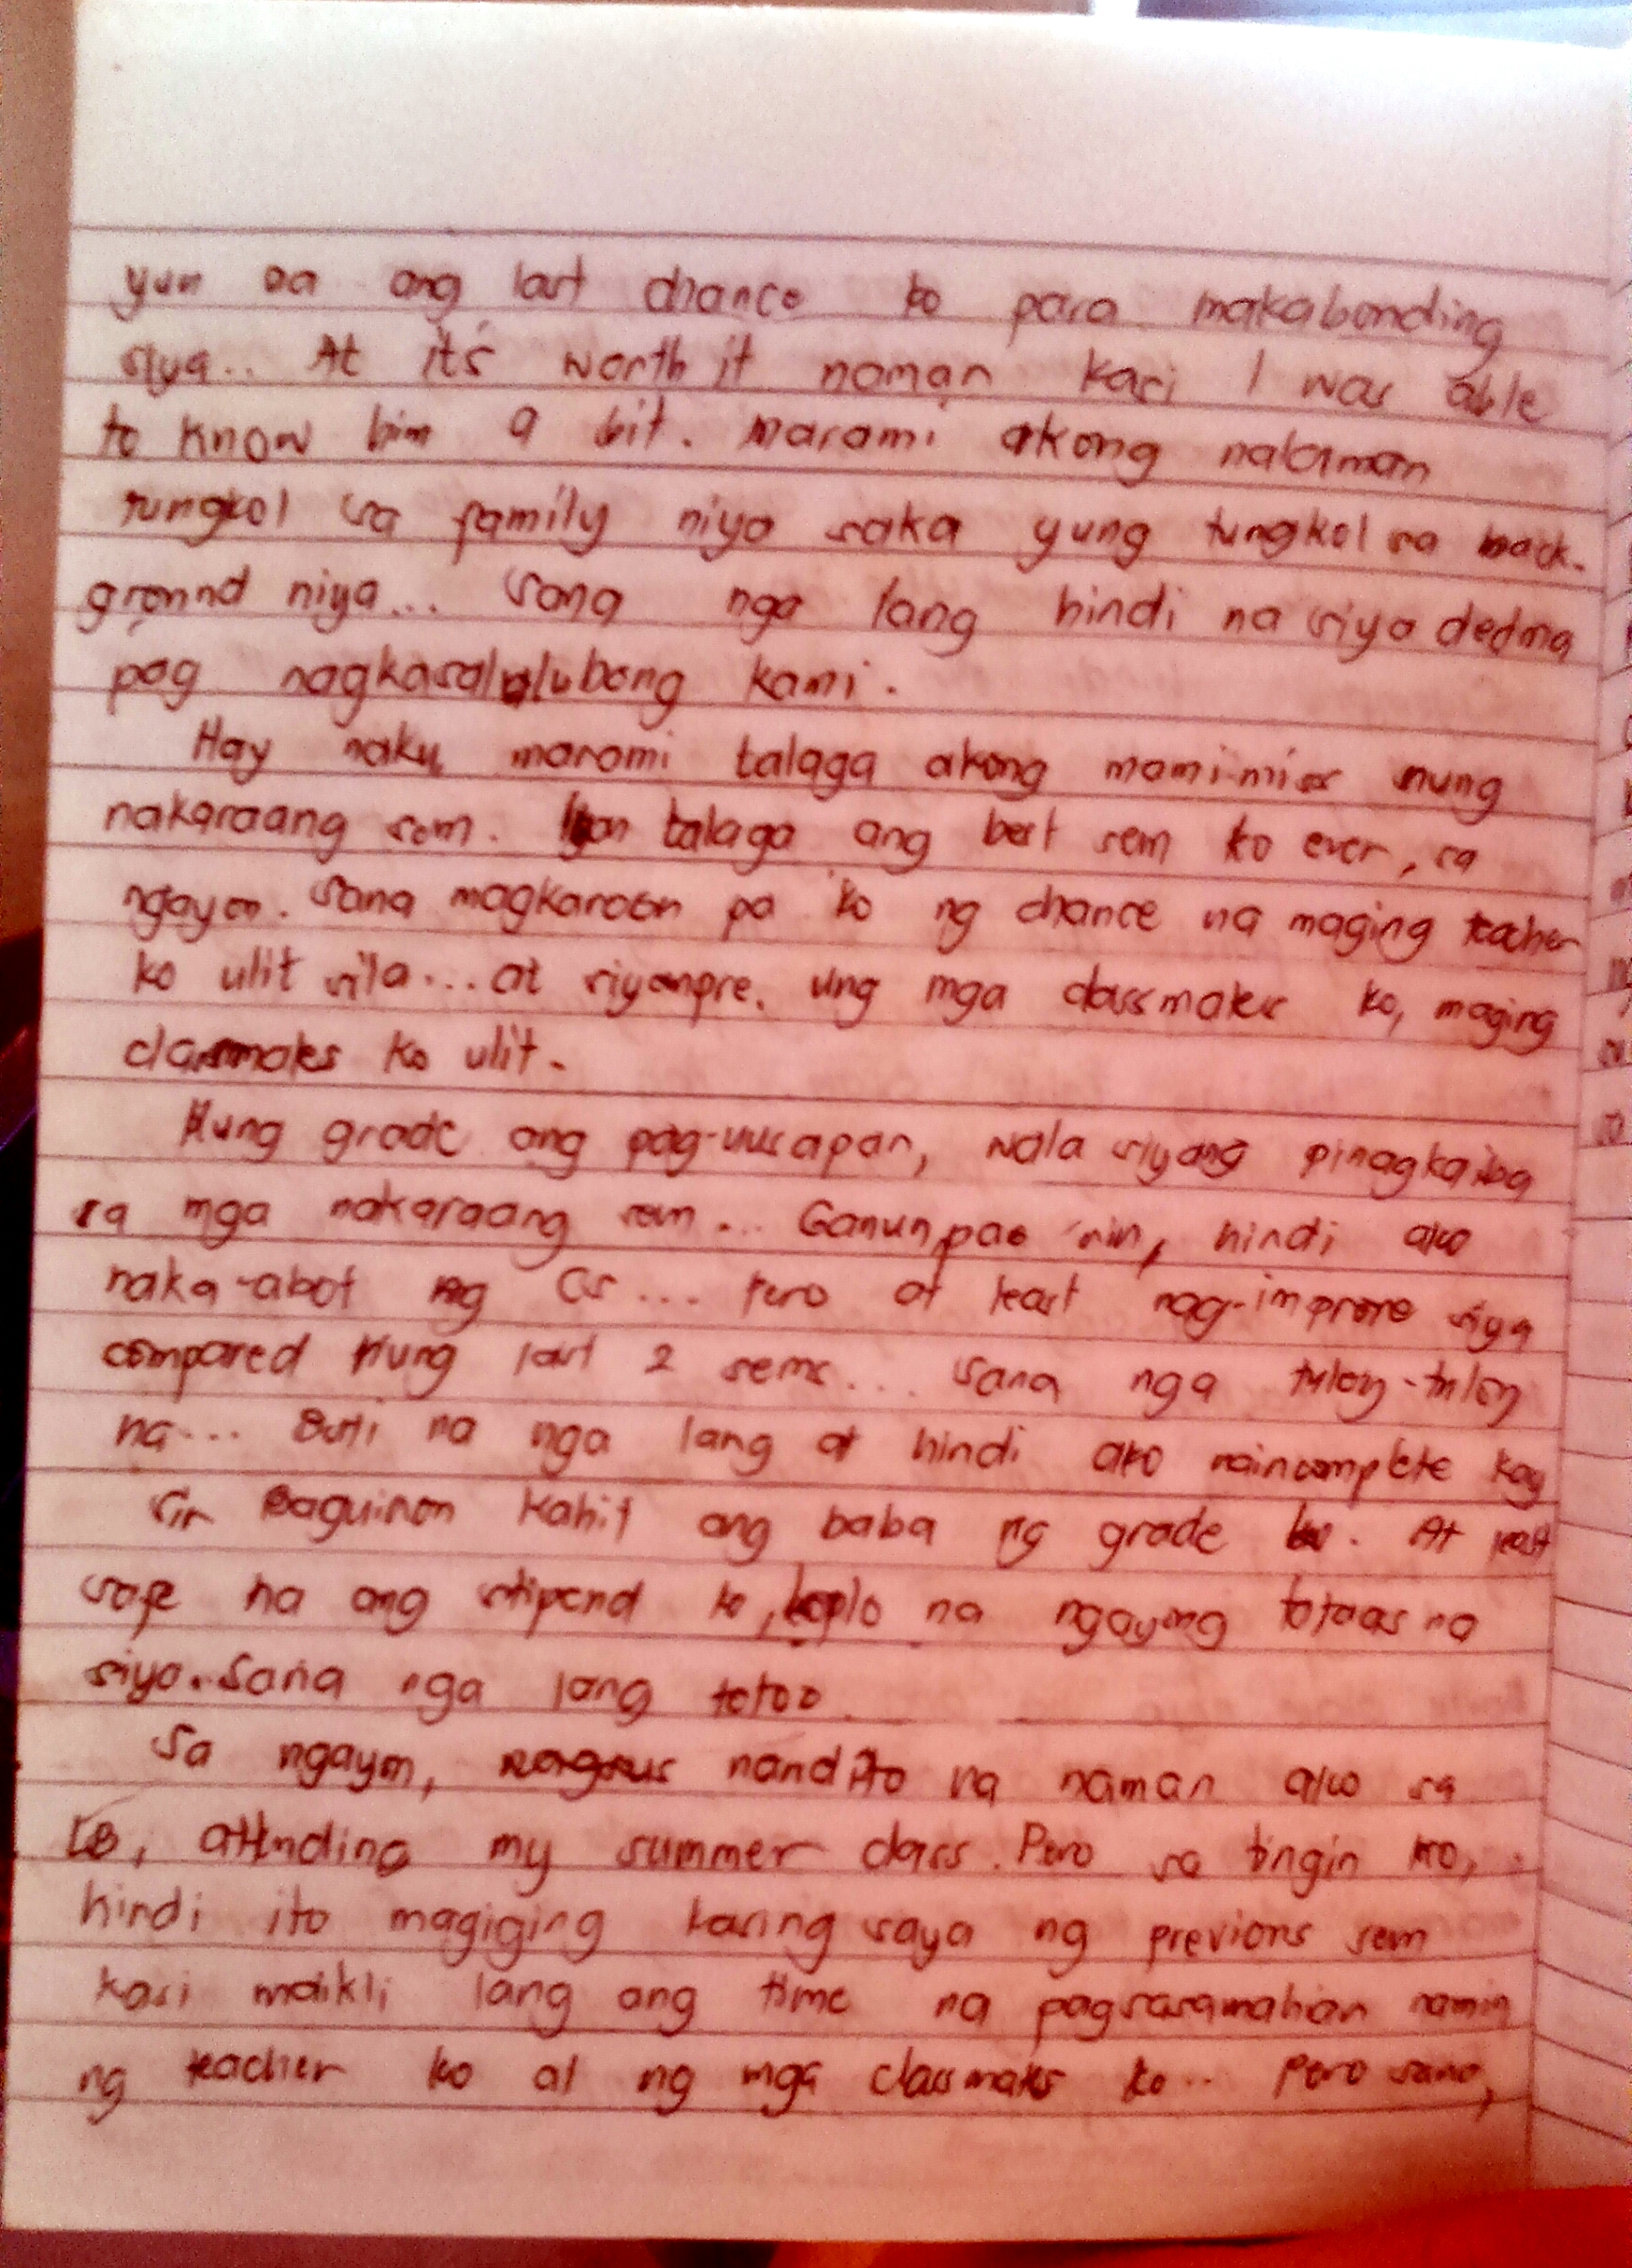 yun na ang last chance ko para makabonding
siya.. At it's worth it naman kasi I was able
to know him a bit. Marami akong nalaman
tungkol sa family niya saka yung tungkol sa back-
ground niya... Sana nga lang hindi na siya dedma
pag nagkasalubong kami.
Hay naku, marami talaga akong mami-miss nung
nakaraang sem. Iyon talaga ang best sem ko ever, sa
ngayon. Sana magkaroon pa 'ko ng chance na maging teacher
ko ulit sila... at siyempre, ung mga classmates ko, maging
classmates ko ulit.
Kung grade ang pag-uusapan, wala siyang pinagkaiba
sa mga nakaraang sem... Ganun pa rin, hindi ako
naka-abot ng CS... Pero at least nag-improve siya
compared kung last 2 sems... Sana nga tuloy-tuloy
na... Buti na nga lang at hindi ako naincomplete kay
Sir Baguinon kahit ang baba ng grade ko. At least
safe na ang stipend ko, lalo na ngayong tataas na
siya. Sana nga lang totoo
Sa ngayon, nandito na naman ako sa
LB, attending my summer class. Pero sa tingin ko,
hindi ito magiging kasing saya ng previous sem
kasi maikli lang ang time na pagsasamahan namin
ng teacher ko at ng mga classmates ko.. Pero sana,